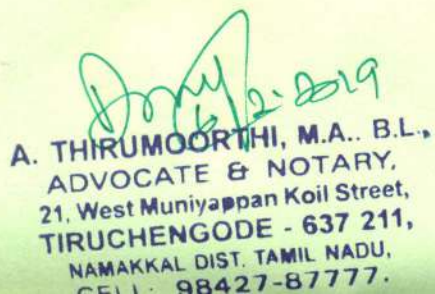 6/2-2019
A. THIRUMOORTHI, M.A.. B.L.,
ADVOCATE & NOTARY,
21, West Muniyappan Koil Street,
TIRUCHENGODE - 637 211,
NAMAKKAL DIST. TAMIL NADU,
CELL: 98427-87777.